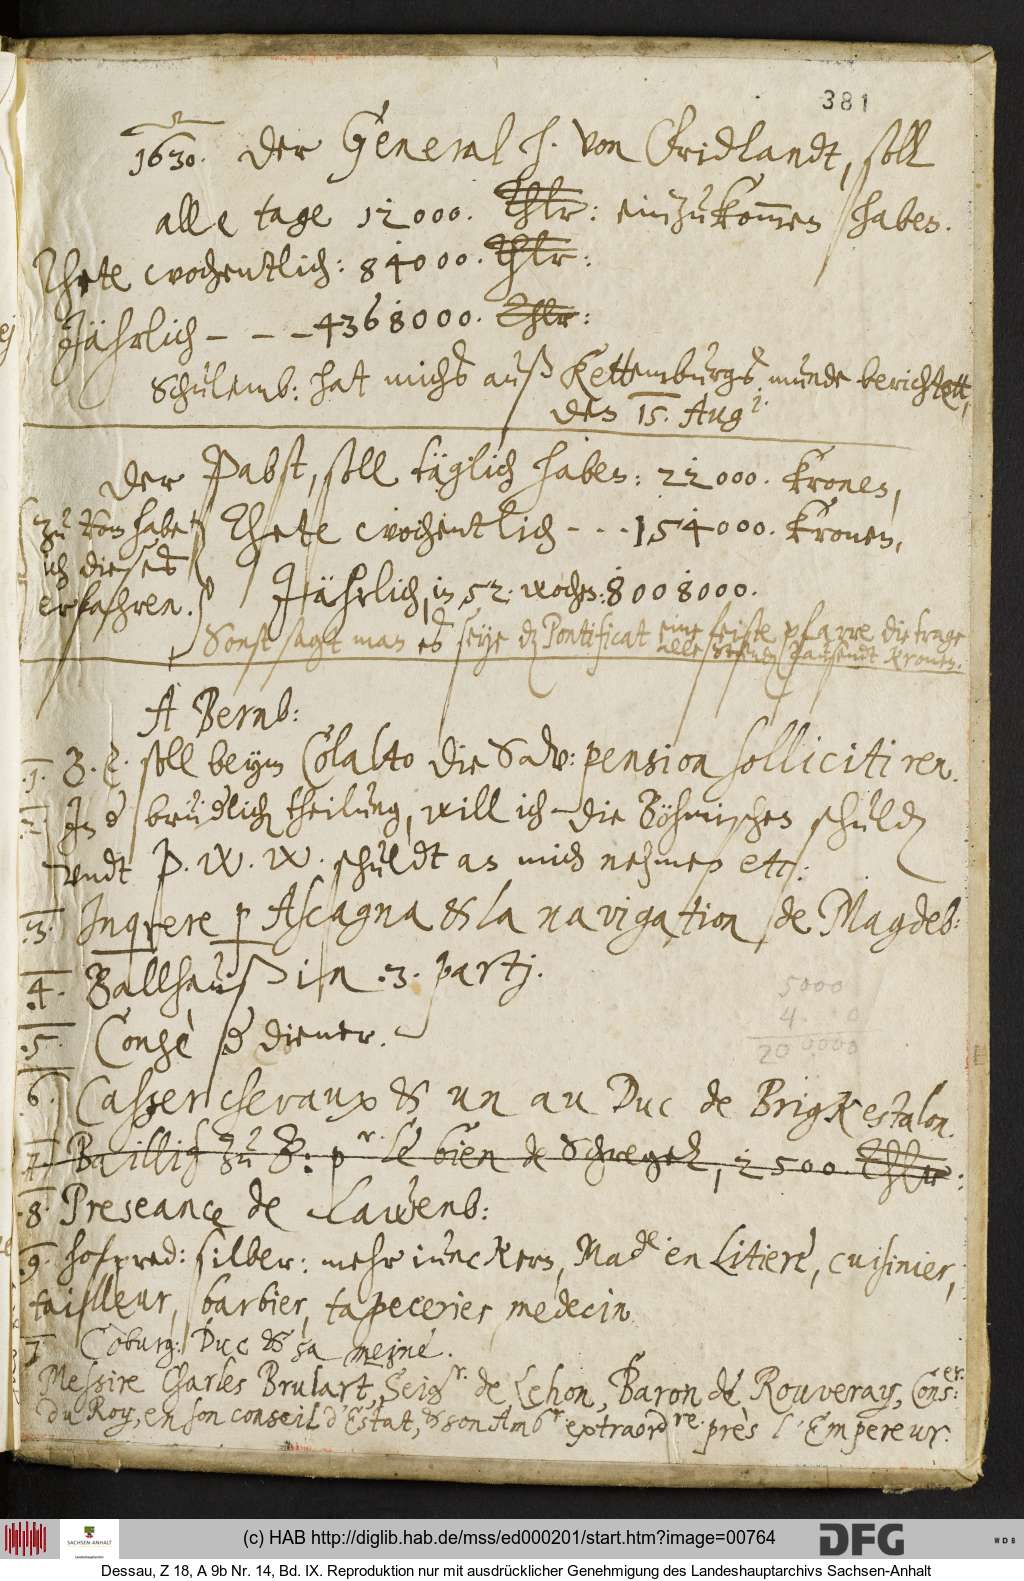 381
1630. der General h. von Fridlandt, soll
alle tage 12000. Thlr: einzukommen haben.
Thete wochentlich: 84000. Thlr:
Jährlich – – – 4368000. Thlr:
Schulemb: hat michs auß Kettemburgs munde berichtett,
den 15. Aug
Der Pabst, soll täglich haben: 22000. kronen,
Thete wochentlich - - - 154000. kronen,
Jährlich, in 52. wochen. 8008000.
zu Rom habe
ich dieses
erfahren.
Sonst sagt man es seye dz Pontificat eine feiste pfarre die trage
alle stundt tausendt kronen.
A Bernb:
.1. B. E. soll beym Colalto die Salv: pension solliciti ren.
In d brüderlich theilung, will ich die Böhmischen schuld
undt P. W. W. schuldt an mich nehmen etc:
.3. Inqrere p Ascagna & la navigation de Magdeb:
.4. Ballhauß in .3. partj.
.5. Congè d diener.
6. Casser chevaux & un au Duc de Brigk estalon.
7. Baillif zu B: pr. le bien de Schregel, 2500. Thlr:
.8. Preseance de Lawenb:
.9. hofpred: silber: mehr iunckern, Made en Litiere, cuisinier,
tailleur, barbier, tapeceries medecin
Coburg: Duc & sa mejne.
Messire Charles Brulart, Seigr. de Lehon, Baron de Rouveray, Conser:
du Roy, en son conseil d'Estat, & son Ambr extraordre. près l'Empereur.
5000
4 0
200000
(c) HAB http://diglib.hab.de/mss/ed000201/start.htm?image=00764
SACHSEN-ANHALT
DFG
WDB
Dessau, Z 18, A 9b Nr. 14, Bd. IX. Reproduktion nur mit ausdrücklicher Genehmigung des Landeshauptarchivs Sachsen-Anhalt